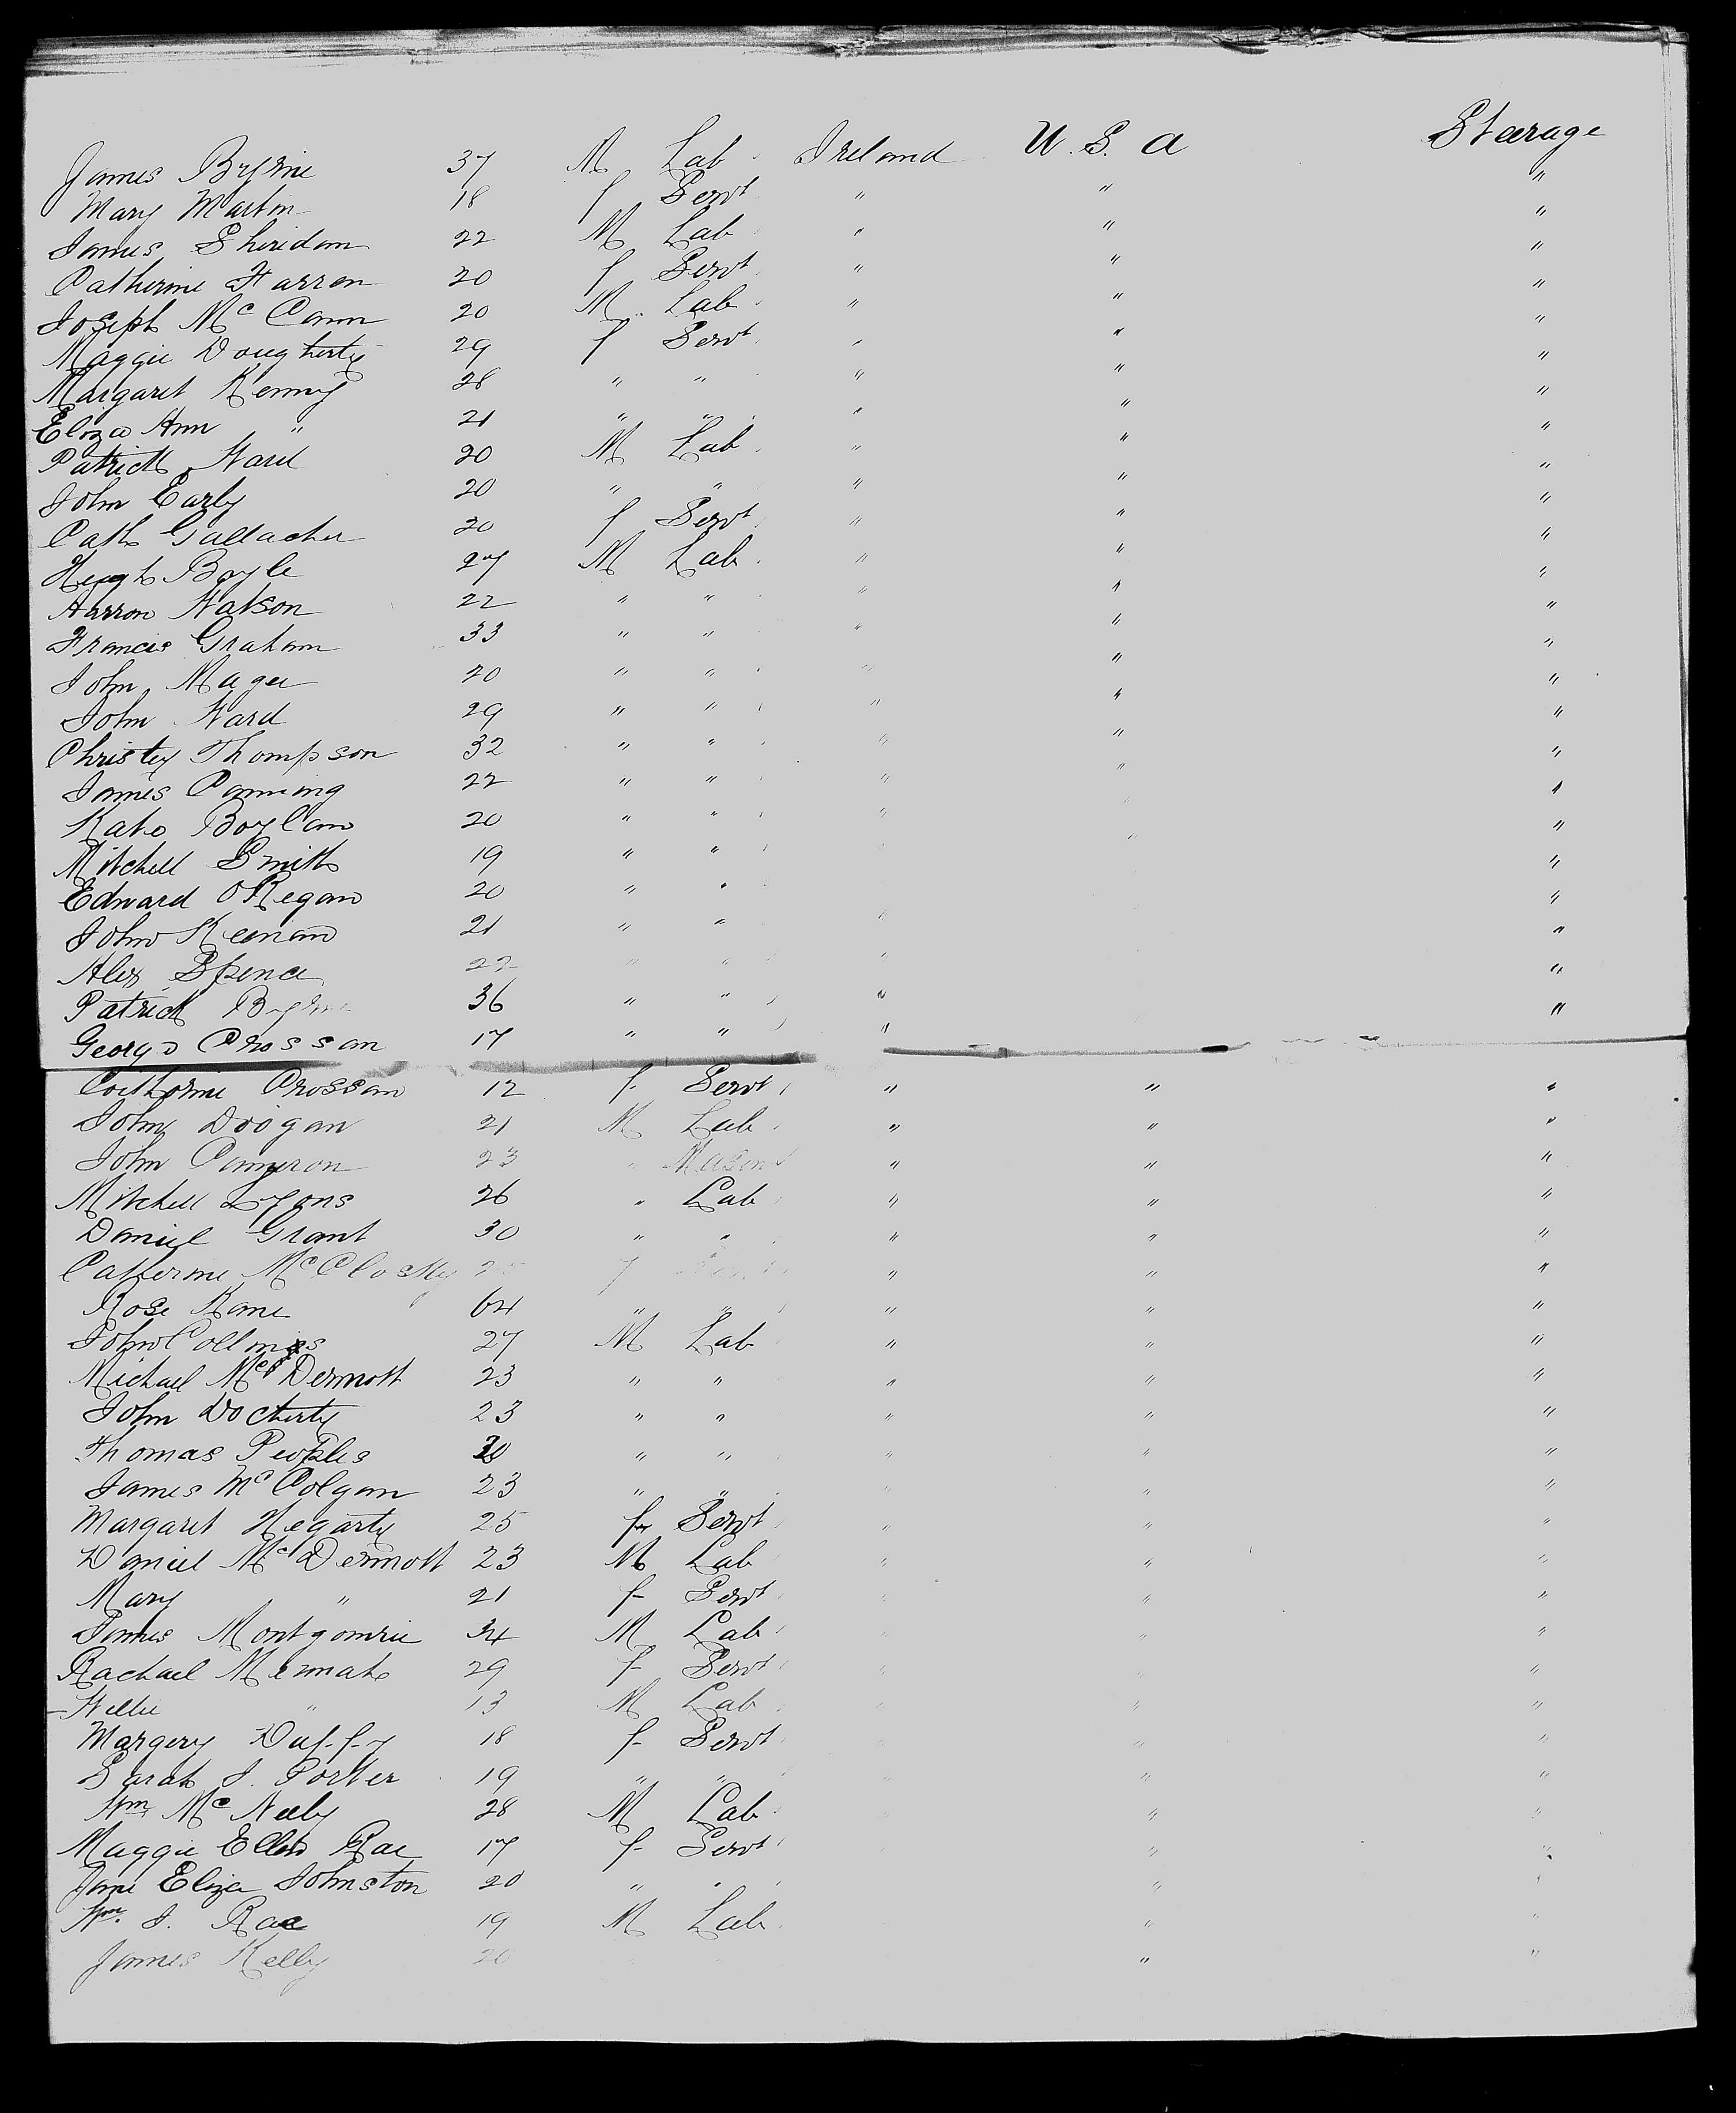 James Byrne 37 M Lab Ireland U.S.A Stearage
Mary Martin 18 f Servt " " "
James Sheridan 22 M Lab " " "
Catherine Farren 20 f Servt " " "
Joseph Mc Cann 20 M Lab " " "
Maggie Dougherty 29 f Servt " " "
Margaret Kenny 28 " " " " "
Eliza Ann " 21 " " " " "
Patrick Ward 20 M Lab " " "
John Early 20 " " " " "
Cath Gallacher 20 f Servt " " "
Hugh Boyle 27 M Lab " " "
Aarron Watson 22 " " " " "
Francis Graham 33 " " " " "
John Magee 20 " " " " "
John Ward 29 " " " " "
Christy Thompson 32 " " " " "
James Canning 22 " " " " "
Kate Boylan 20 " " " " "
Mitchell Smith 19 " " " "
Edward O'Regan 20 " " "
John Keenan 21 " " " "
Alex Spence 22 " " " "
Patrick Byrne 36 " " " "
George Crossan 17 " " "
Catherine Crossan 12 f Servt " " "
John Doogan 21 M Lab " " "
John Cameron 23 " Mason " " "
Mitchell Lyons 26 " Lab " " "
Daniel Grant 30 " " " " "
Catherine McClosky f " " "
Rose Kane 64 " " " " "
John Collins 27 M Lab " " "
Michael McDermott 23 " " " " "
John Docherty 23 " " " " "
Thomas Peoples 30 " " " " "
James McColgan 23 " " " " "
Margaret Hegarty 25 f Servt " " "
Daniel McDermott 23 M Lab " " "
Mary " 21 f Servt " " "
James Montgomrie 34 M Lab " " "
Rachael 29 f Servt " " "
Willie " 13 M Lab " " "
Margery Duffy 18 f Servt " "
Sarah J. Porter 19 " " " "
Wm McNeely 28 M Lab " "
Maggie Ellen Rae 17 f Servt " "
Jane Eliza Johnston 20 " " " "
Wm. J. Rae 19 M Lab " "
James Kelly 20 " "